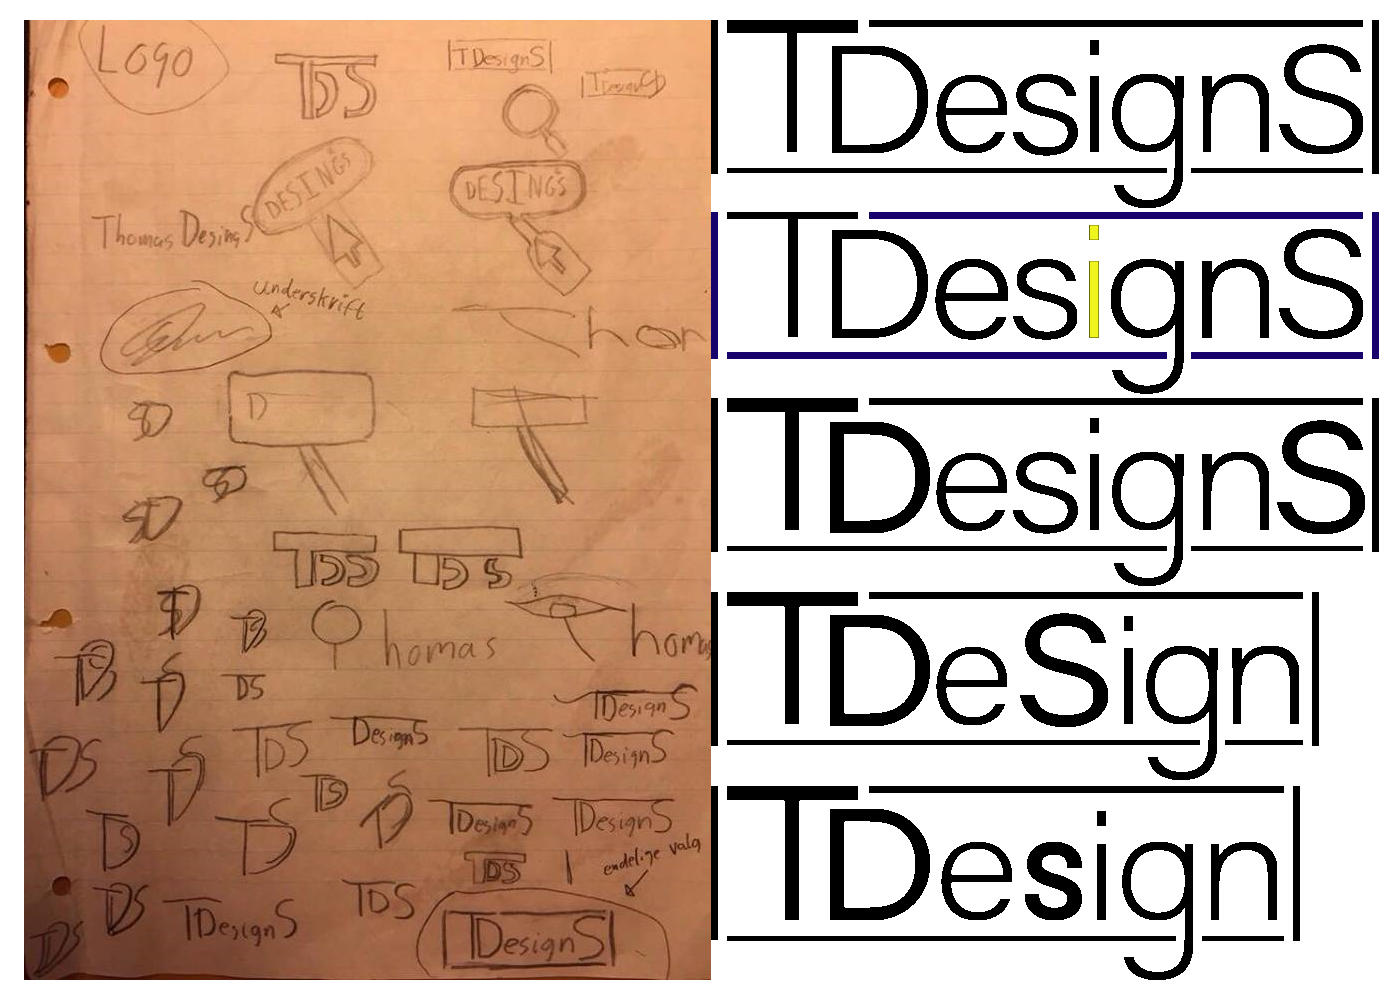 Logo
TDS
TDesignS
DESINGS
DESINGS
Thomas DesingS
underskrift
hom
D
SD
SD
SD
TDS
TDS
homas
homas
TDS
DS
TDesignS
TDS
TDS
DesignS
TDS
TDesignS
TDS
TDS
TDesignS
TDesignS
TDS
endelige valg
TDS
TDesignS
TDS
TDesignS
TDS
TDesignS
TDesignS
TDesignS
TDeSign
TDesign